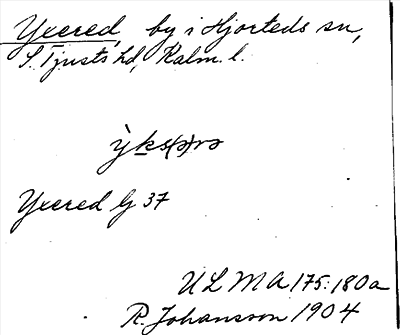 Yxered, by i Hjorteds sn,
S. Tjusts hd, Kalm. l.
ỳks(ə)rə
Yxered G 37
ULMA 175:180a
R. Johansson 1904